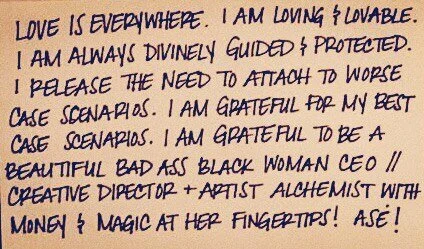 LOVE IS EVERYWHERE. I AM LOVING & LOVABLE.
I AM ALWAYS DIVINELY GUIDED & PROTECTED.
I RELEASE THE NEED TO ATTACH TO WORSE
CASE SCENARIOS. I AM GRATEFUL FOR MY BEST
CASE SCENARIOS. I AM GRATEFUL TO BE A
BEAUTIFUL BAD ASS BLACK WOMAN CEO //
CREATIVE DIRECTOR + ARTIST ALCHEMIST WITH
MONEY & MAGIC AT HER FINGERTIPS! ASÉ!